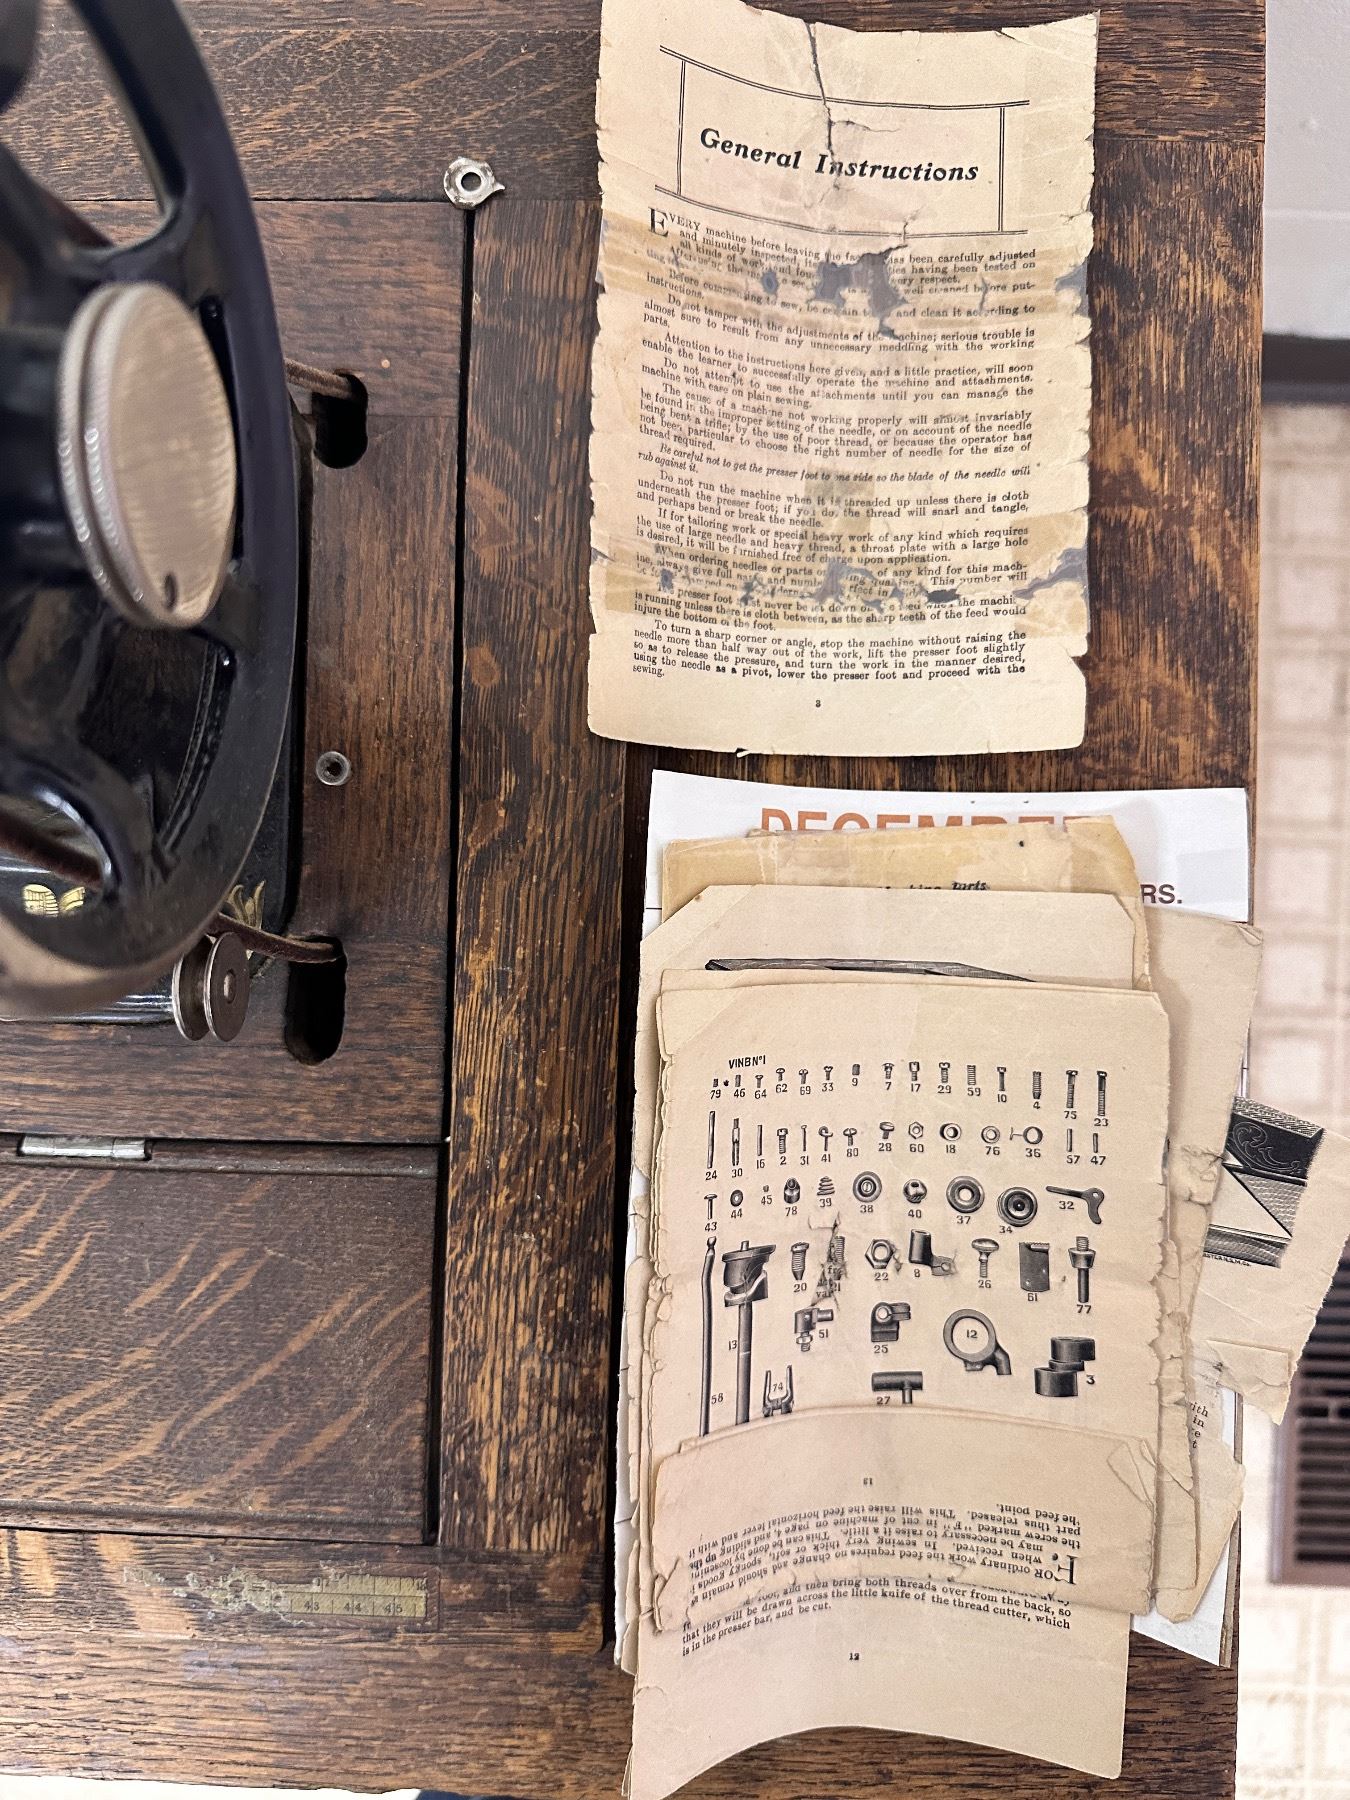 General Instructions
EVERY machine before leaving the has been carefully adjusted
and minutely inspected, its having been tested on
all kinds of work and every respect.
After using the well cleaned before put-
ting
Before commencing to sew, be certain to and clean it according to
instructions.
Do not tamper with the adjustments of the machine; serious trouble is
almost sure to result from any unnecessary meddling with the working
parts.
Attention to the instructions here given, and a little practice, will soon
enable the learner to successfully operate the machine and attachments.
Do not attempt to use the attachments until you can manage the
machine with ease on plain sewing.
The cause of a machine not working properly will almost invariably
be found in the improper setting of the needle, or on account of the needle
being bent a trifle; by the use of poor thread, or because the operator has
not been particular to choose the right number of needle for the size of
thread required.
Be careful not to get the presser foot to one side so the blade of the needle will
rub against it.
Do not run the machine when it is threaded up unless there is cloth
underneath the presser foot; if you do, the thread will snarl and tangle,
and perhaps bend or break the needle.
If for tailoring work or special heavy work of any kind which requires
the use of large needle and heavy thread, a throat plate with a large hole
is desired, it will be furnished free of charge upon application.
When ordering needles or parts of any kind for this mach-
ine, always give full and number This number will
presser foot must never be let down on feed when the machine
is running unless there is cloth between, as the sharp teeth of the feed would
injure the bottom of the foot.
To turn a sharp corner or angle, stop the machine without raising the
needle more than half way out of the work, lift the presser foot slightly
so as to release the pressure, and turn the work in the manner desired,
using the needle as a pivot, lower the presser foot and proceed with the
sewing.
3
DECEMBER
parts
RS.
VINB Nº1
79 46 64 62 69 33 9 7 17 29 59 10 4 75 23
24 30 16 2 31 41 80 28 60 18 76 36 57 47
43 44 45 78 39 38 40 37 34 32
20 21 22 8 26 61 77
13 51 25 12 3
58 74 27
with
in
13
FOR ordinary work the feed requires no change and should remain as
when received. In sewing very thick or soft, spongy goods it
may be necessary to raise it a little. This can be done by loosening
the screw marked "F" in cut of machine on page 4, and sliding up the
part thus released. This will raise the feed horizontal lever and with it
the feed point.
foot, and then bring both threads over from the back, so
that they will be drawn across the little knife of the thread cutter, which
is in the presser bar, and be cut.
12
43 44 45